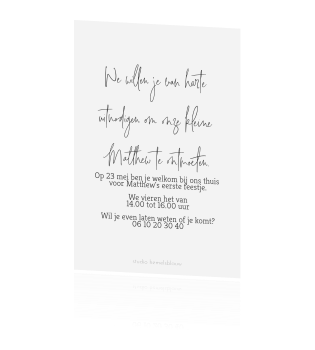 We willen je van harte
uitnodigen om onze kleine
Matthew te ontmoeten.
Op 23 mei ben je welkom bij ons thuis
voor Matthew's eerste feestje.
We vieren het van
14.00 tot 16.00 uur
Wil je even laten weten of je komt?
06 10 20 30 40